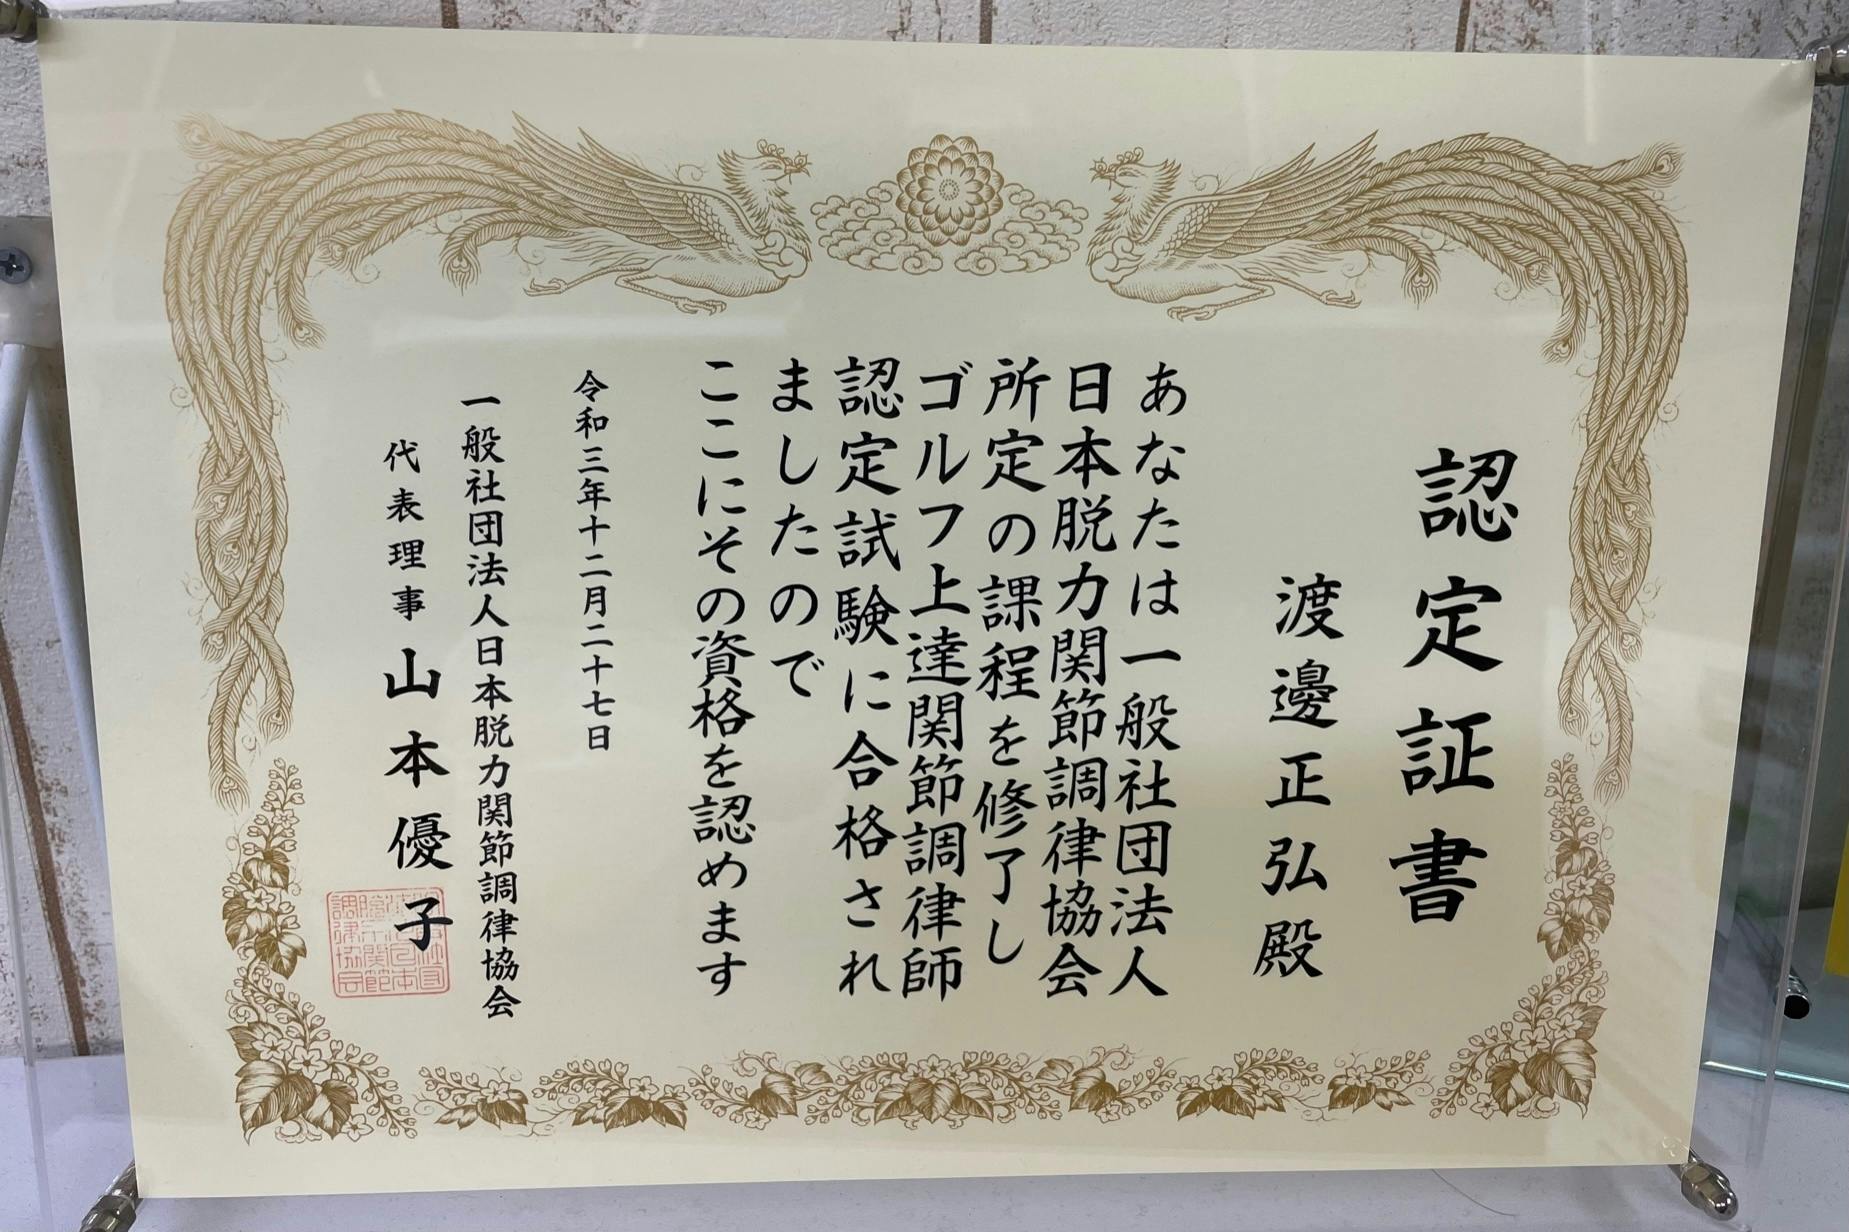 認定証書
渡邊正弘殿
あなたは一般社団法人
日本脱力関節調律協会
所定の課程を修了し
ゴルフ上達関節調律師
認定試験に合格され
ましたので
ここにその資格を認めます
令和三年十二月二十七日
一般社団法人日本脱力関節調律協会
代表理事 山本優子